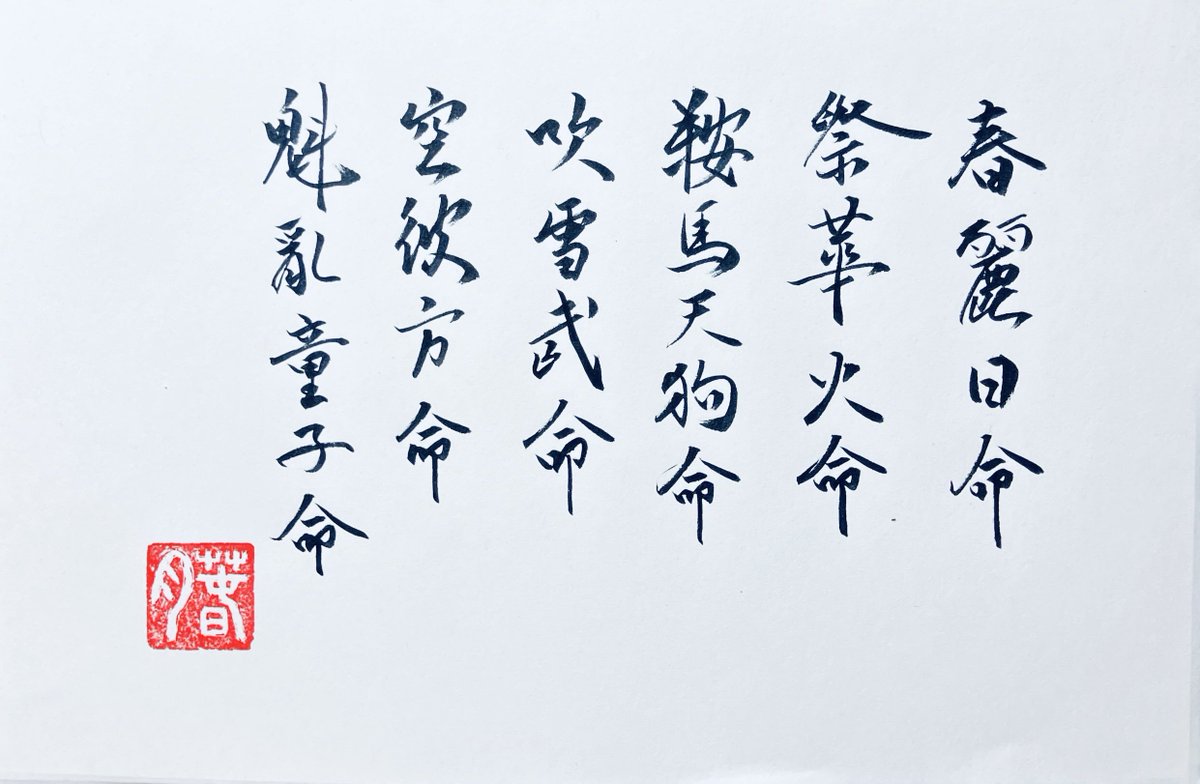 春麗日命
祭華火命
鞍馬天狗命
吹雪武命
空彼方命
魁亂童子命